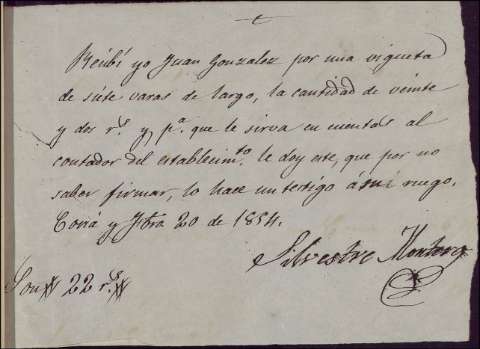 Recibí yo Juan Gonzalez por una vigueta
de siete varas de largo, la cantidad de veinte
y dos r.s y p.a que le sirva en cuentas al
contador del establecim.to le doy este, que por no
saber firmar, lo hace un testigo á mi ruego.
Coria y 20 de 1854.
Silvestre
Son 22 r.s